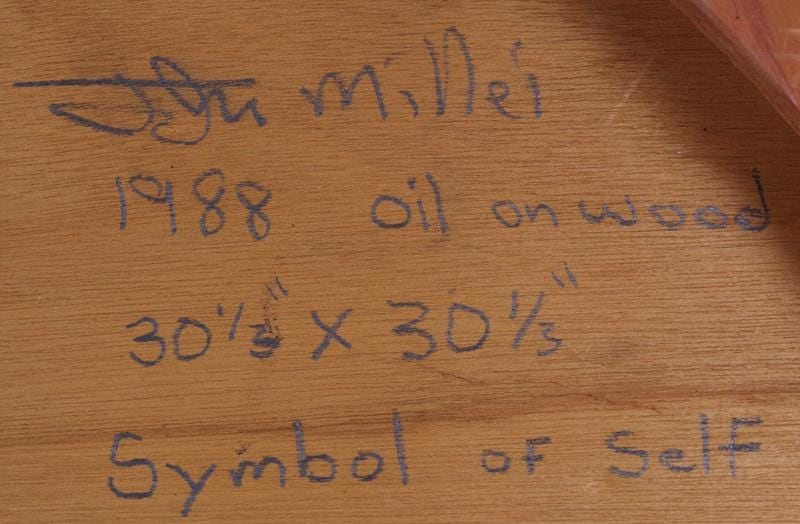 John Miller
1988 oil on wood
30 1/3" x 30 1/3"
Symbol of Self